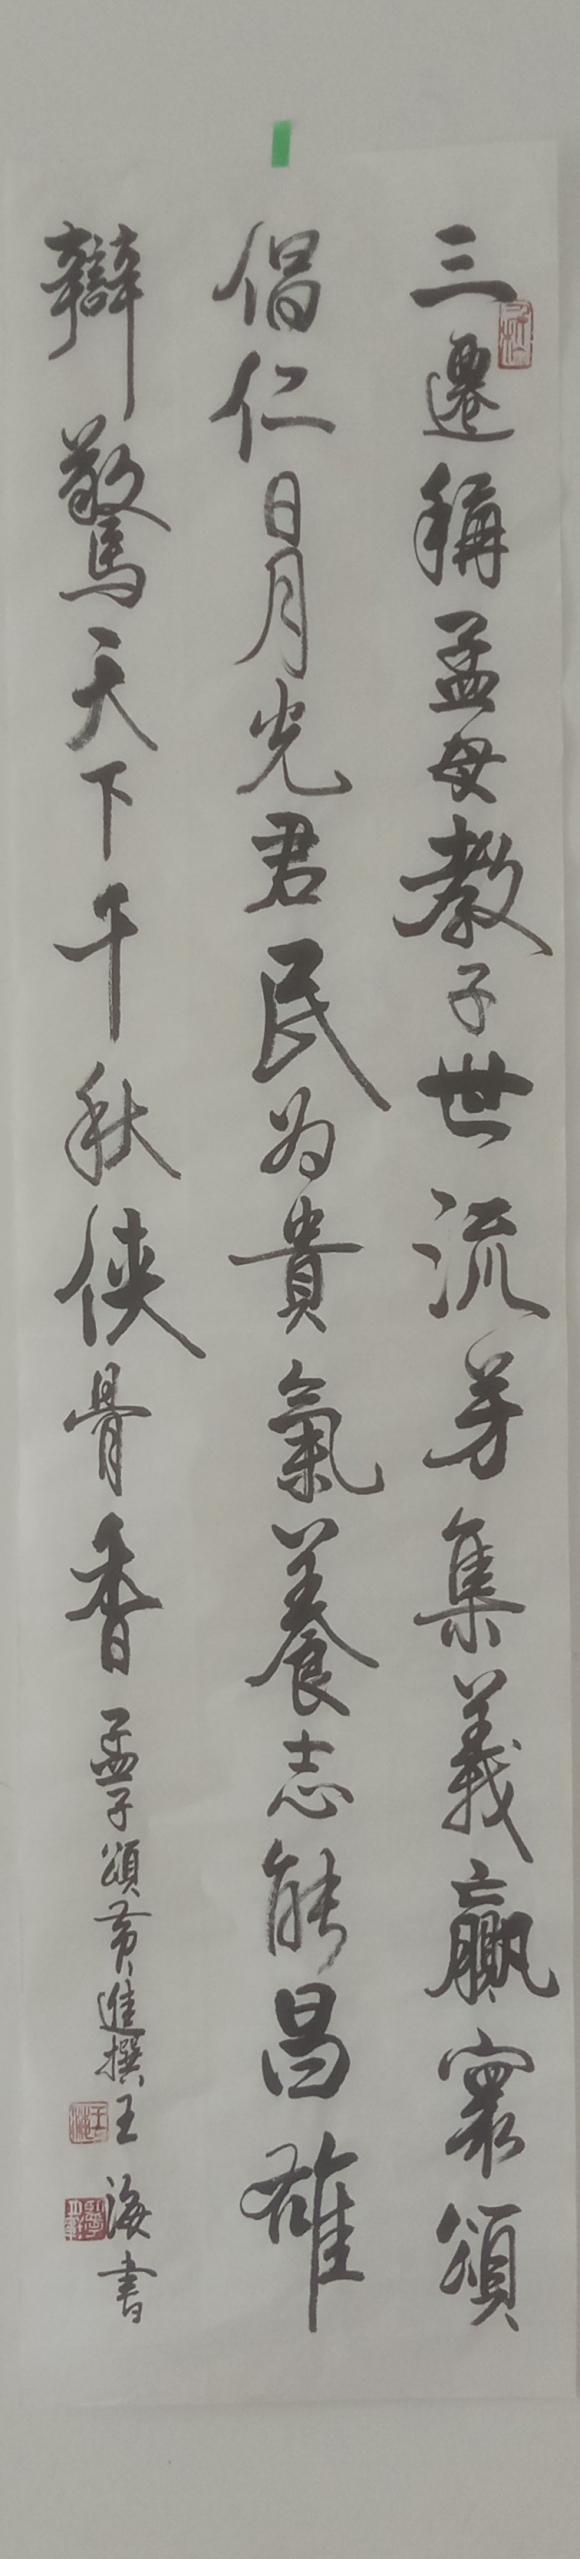 三遷稱孟母教子世流芳集義贏寰頌
倡仁日月光君民为貴氣養志能昌雄
辯驚天下千秋俠骨香孟子頌黄進撰王海書